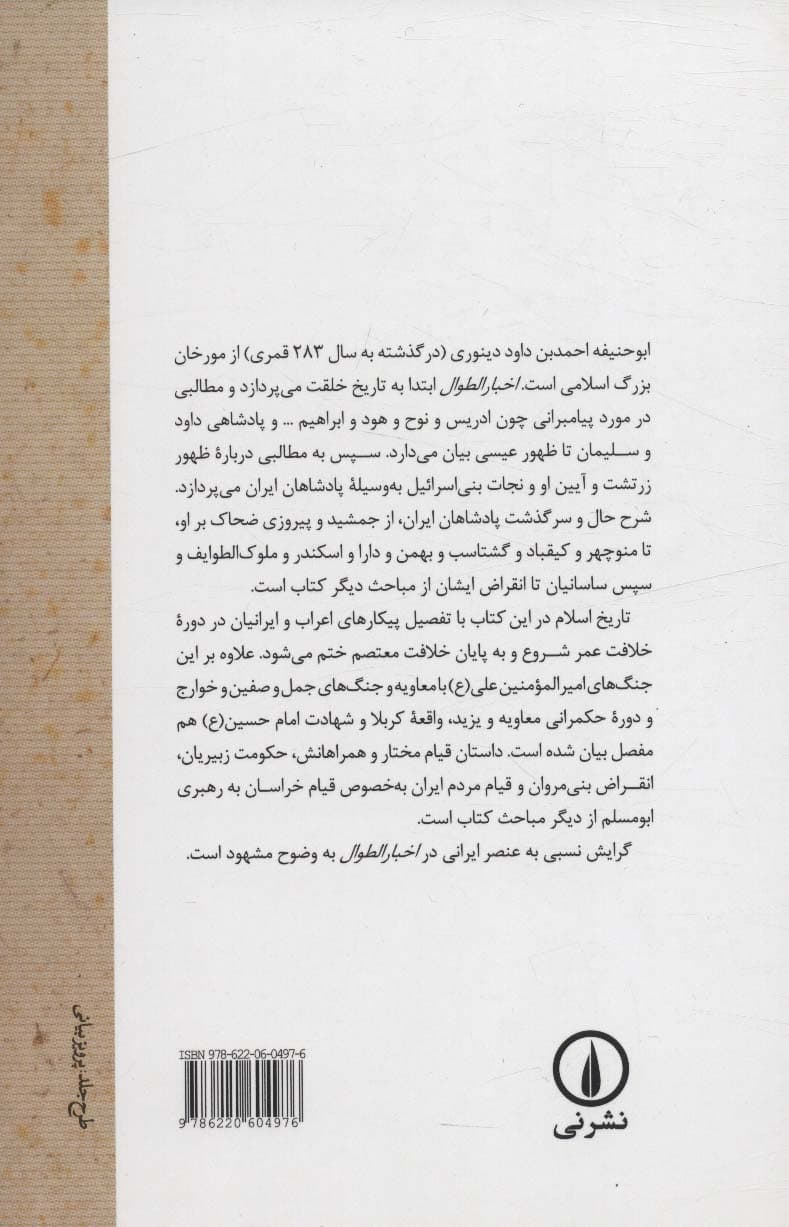 ابوحنیفه احمدبن داود دینوری (درگذشته به سال ۲۸۳ قمری) از مورخان
بزرگ اسلامی است. اخبارالطوال ابتدا به تاریخ خلقت می‌پردازد و مطالبی
در مورد پیامبرانی چون ادریس و نوح و هود و ابراهیم ... و پادشاهی داود
و سلیمان تا ظهور عیسی بیان می‌دارد. سپس به مطالبی دربارهٔ ظهور
زرتشت و آیین او و نجات بنی‌اسرائیل به‌وسیلهٔ پادشاهان ایران می‌پردازد.
شرح حال و سرگذشت پادشاهان ایران، از جمشید و پیروزی ضحاک بر او،
تا منوچهر و کیقباد و گشتاسب و بهمن و دارا و اسکندر و ملوک‌الطوایف و
سپس ساسانیان تا انقراض ایشان از مباحث دیگر کتاب است.
تاریخ اسلام در این کتاب با تفصیل پیکارهای اعراب و ایرانیان در دورهٔ
خلافت عمر شروع و به پایان خلافت معتصم ختم می‌شود. علاوه بر این
جنگ‌های امیرالمؤمنین علی(ع) با معاویه و جنگ‌های جمل و صفین و خوارج
و دورهٔ حکمرانی معاویه و یزید، واقعهٔ کربلا و شهادت امام حسین(ع) هم
مفصل بیان شده است. داستان قیام مختار و همراهانش، حکومت زبیریان،
انقراض بنی‌مروان و قیام مردم ایران به‌خصوص قیام خراسان به رهبری
ابومسلم از دیگر مباحث کتاب است.
گرایش نسبی به عنصر ایرانی در اخبارالطوال به وضوح مشهود است.
طرح جلد: پرویز بیانی
ISBN 978-622-06-0497-6
9 786220 604976
نشرنی